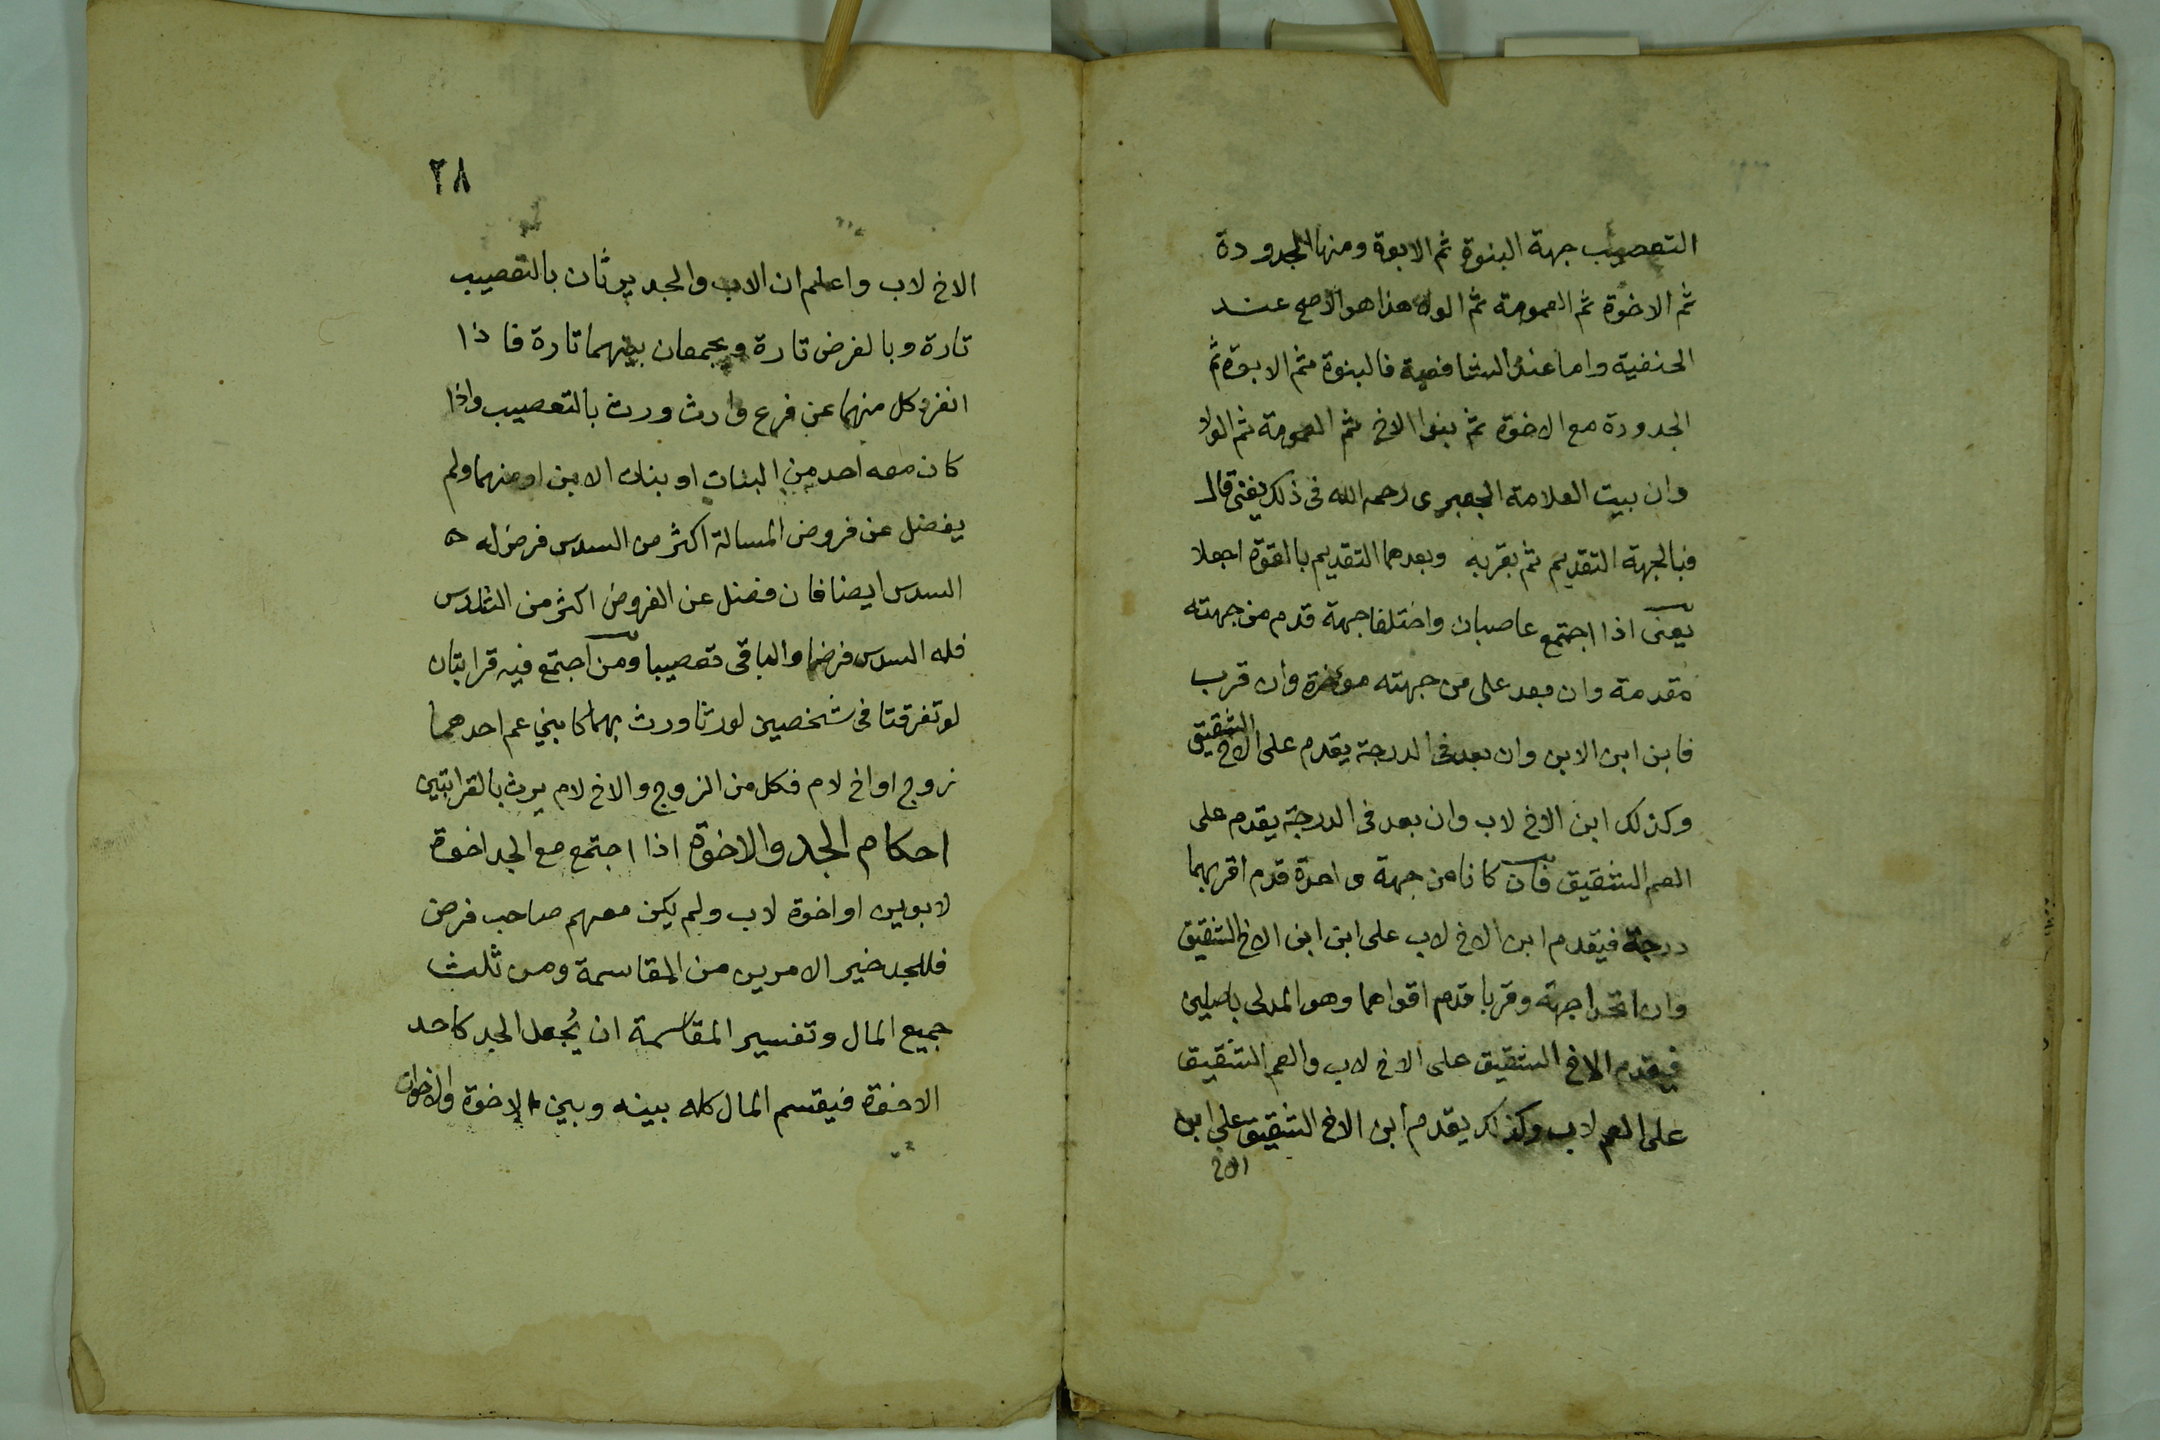 التعصيب جهة البنوة ثم الابوة ومنها الجدودة
ثم الاخوة ثم العمومة ثم الولا هذا هو الاصح عند
الحنفية واما عند الشافعية فالبنوة ثم الابوة ثم
الجدودة مع الاخوة ثم بنوا الاخ ثم العمومة ثم الولا
وان بيت العلامة الجعبرى رحمه الله فى ذلك يغنى قال
فبالجهة التقديم ثم بقربه وبعدهما التقديم بالقوة اجعلا
يعنى اذا اجتمع عاصبان واختلفا جهة قدم من جهته
مقدمة وان بعد على من جهته موخرة وان قرب
فابن ابن الابن وان بعد فى الدرجة يقدم على الاخ الشقيق
وكذلك ابن الاخ لاب وان بعد فى الدرجة يقدم على
العم الشقيق فان كانا من جهة واحدة قدم اقربهما
درجة فيقدم ابن الاخ لاب على ابن ابن الاخ الشقيق
وان اتحدا جهة وقربا قدم اقواهما وهو المدلى باصلين
فيقدم الاخ الشقيق على الاخ لاب والعم الشقيق
على العم لاب وكذلك يقدم ابن الاخ الشقيق على ابن
الاخ
٢٨
الاخ لاب واعلم ان الاب والجد يرثان بالتعصيب
تارة وبالفرض تارة ويجمعان بينهما تارة فاذا
انفرد كل منهما عن فرع وارث ورث بالتعصيب واذا
كان معه احد من البنات او بنات الابن او منهما ولم
يفضل عن فروض المسالة اكثر من السدس فرض له
السدس ايضا فان فضل عن الفروض اكثر من السدس
فله السدس فرضا والباقى تعصيبا ومن اجتمع فيه قرابتان
لو تفرقتا فى شخصين لورثا ورث بهما كابني عم احدهما
زوج او اخ لام فكل من الزوج والاخ لام يرث بالقرابتين
احكام الجد والاخوة اذا اجتمع مع الجد اخوة
لابوين او اخوة لاب ولم يكن معهم صاحب فرض
فللجد خير الامرين من المقاسمة ومن ثلث
جميع المال وتفسير المقاسمة ان يُجعل الجد كاحد
الاخوة فيقسم المال كله بينه وبين الاخوة والاخوات